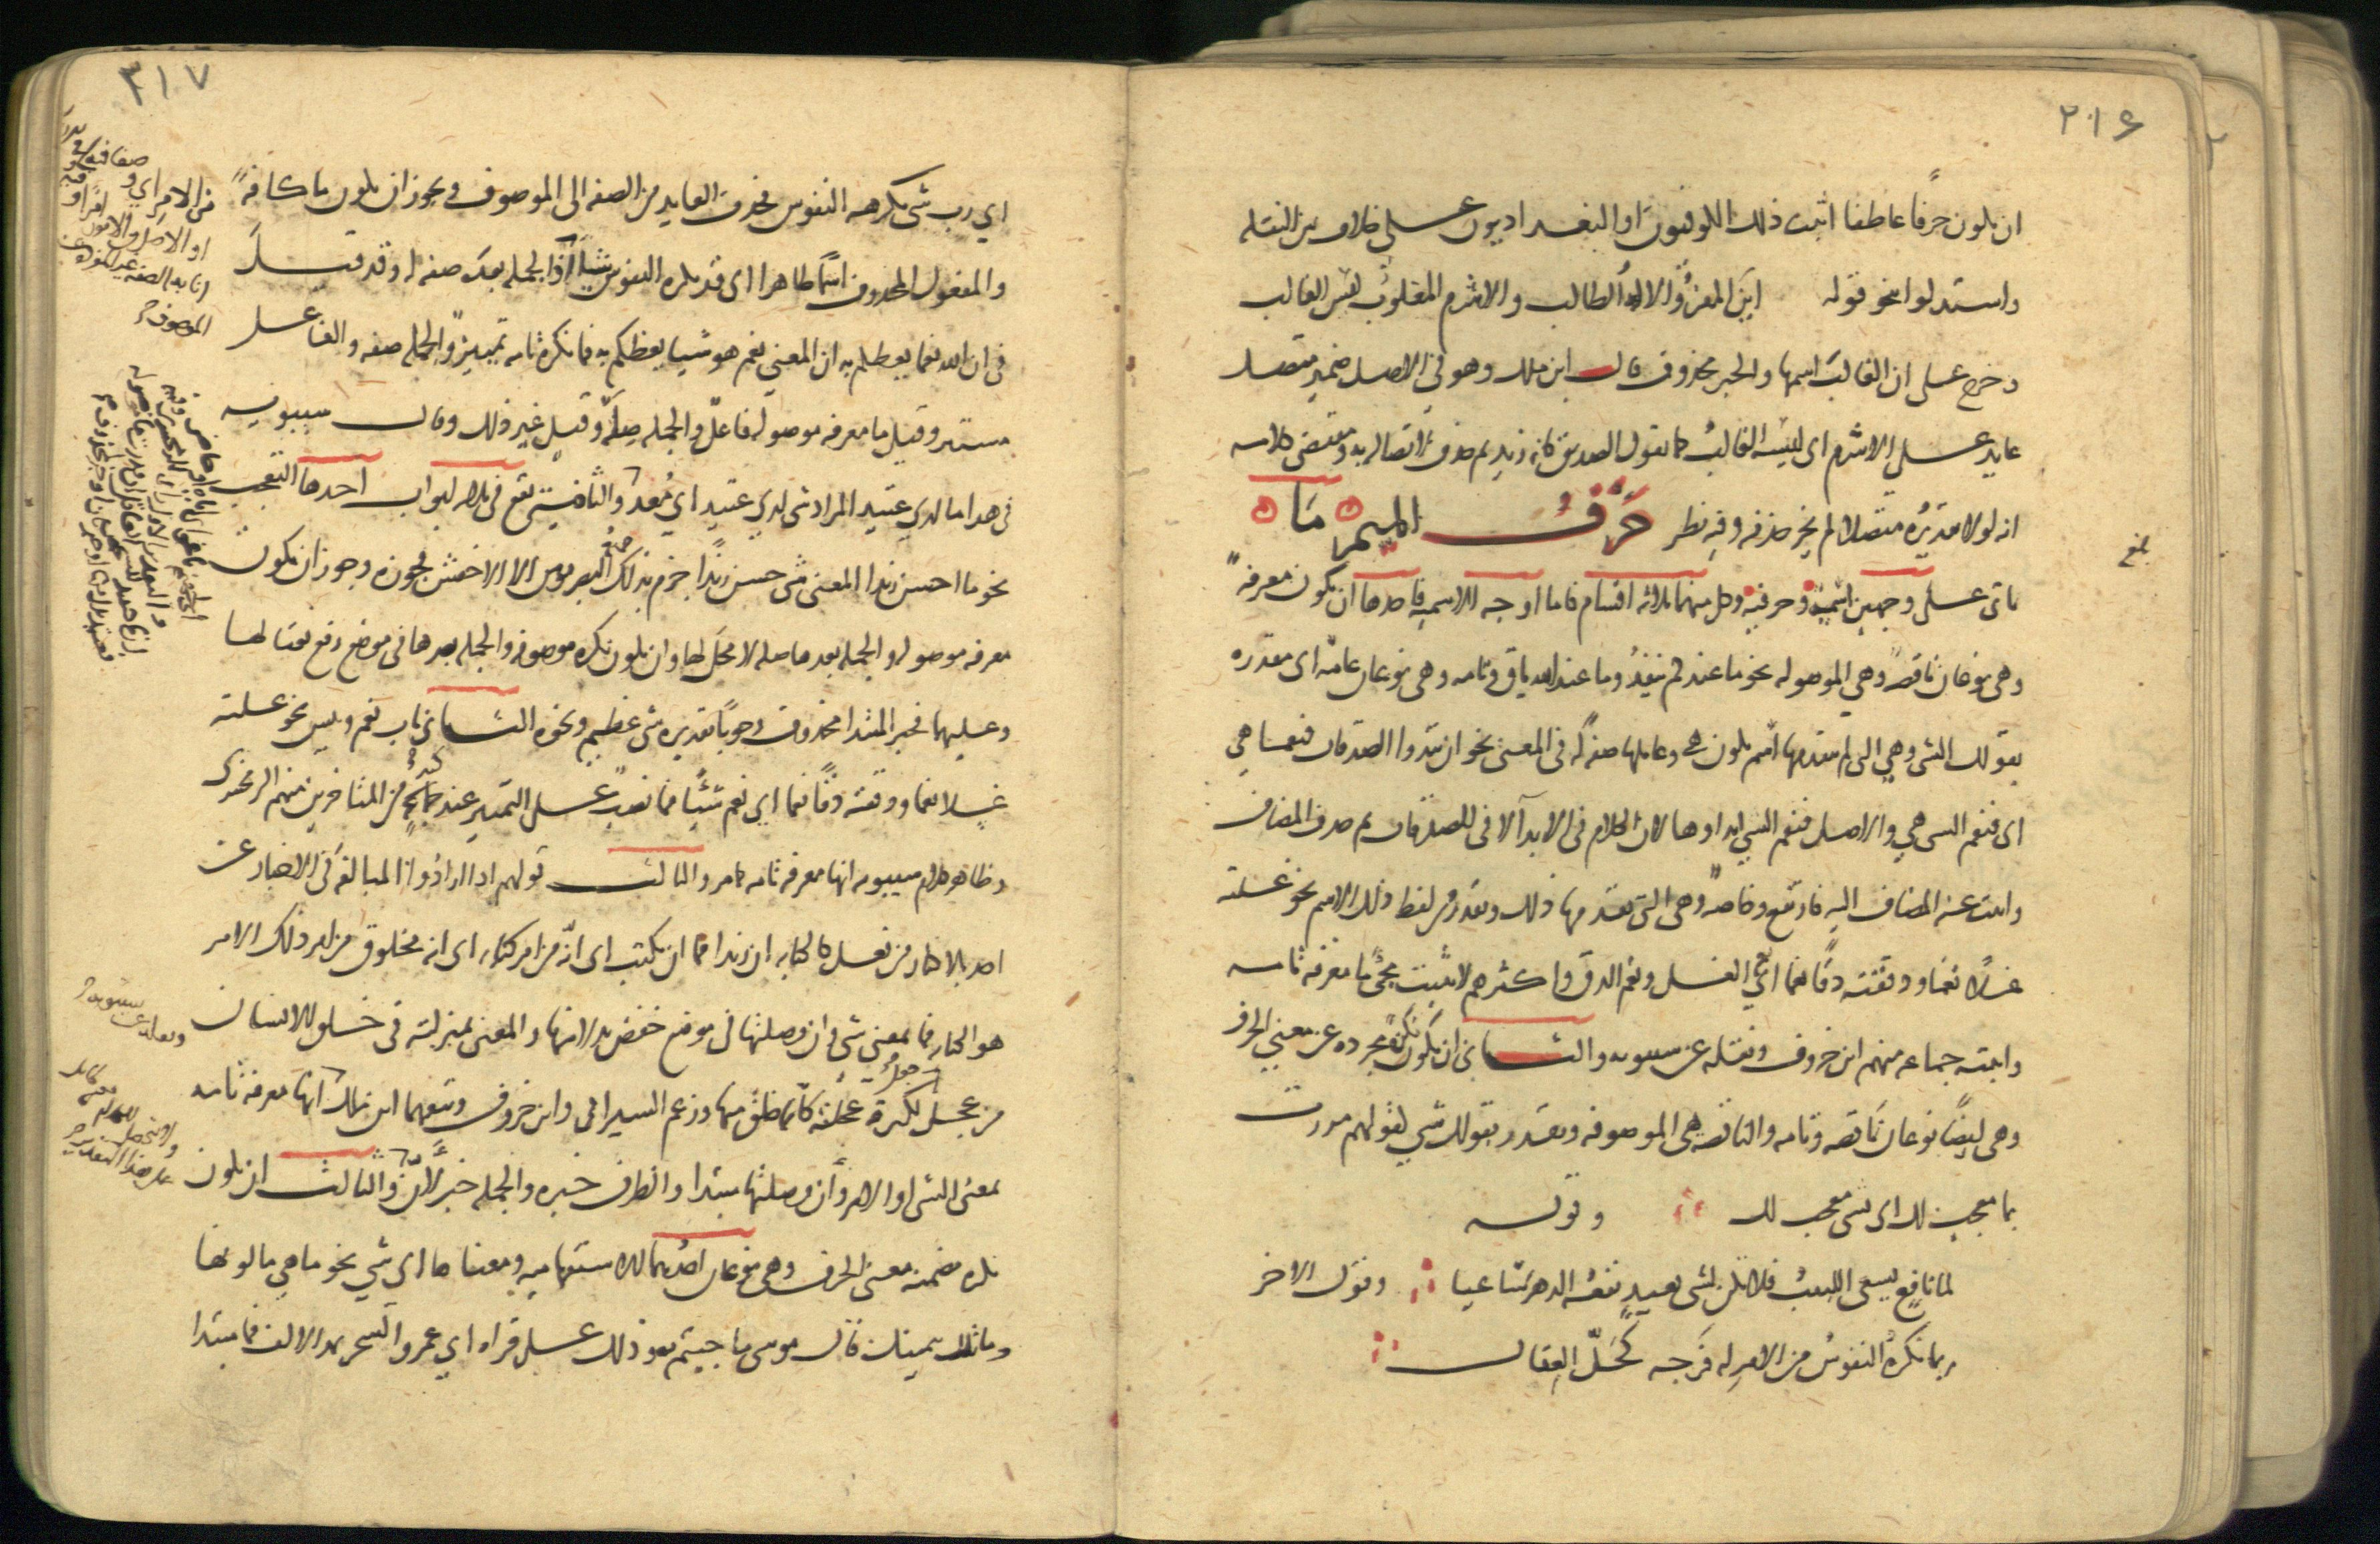 ٢١٦
ان يكون حرفًا عاطفا اثبت ذلك الكوفيون او البغداديون على خلاف بين النقلة
واستدلوا بنحو قوله اين المفرّ والاله الطالب والاشرم المغلوب ليس الغالب
وخرج على ان الغالب اسمها والخبر محذوف قال ابن مالك وهو في الاصل ضمير متصل
عايد على الاشرم اى ليسه الغالب كما تقول الصديق كانه زيد ثم حذف لاتصاله به ومقتضى كلامه
انه لولا تقديره متصلا لم يجز حذفه وفيه نظر حرف الميم ما
بلغ
تاتى على وجهين اسمية وحرفية وكل منهما ثلاثه اقسام فاما اوجه الاسميه فاحدها ان يكون معرفة
وهى نوعان ناقصة وهي الموصوله نحو ما عندكم ينفد وما عند الله باق وتامه وهى نوعان عامة اى مقدره
بقولك الشى وهي التى لم يتقدمها اسم يكون هي وعاملها صفة له فى المعنى نحو ان تبدوا الصدقات فنعما هي
اى فنعم الشى هي والاصل فنعم الشي ابداوها لان الكلام فى الابدآ لا فى الصدقات ثم حذف المضاف
وانيب عنه المضاف اليه فارتفع وخاصة وهى التى تقدمها ذلك وتقدر من لفظ ذلك الاسم نحو غسلته
غسلًا نعما ودققته دقًا نعما اي نعم الغسل ونعم الدق واكثرهم لا يثبت مجئ ما معرفه تامه
واثبته جماعه منهم ابن خروف ونقله عن سيبويه والثانى ان تكون نكرة مجرده عن معنى الحرف
وهى ايضًا نوعان ناقصه وتامه والناقصه هى الموصوفه وتقدر بقولك شي لقولهم مررت
بما معجب لك اى بشى معجب لك وقوله
لما نافع يسعى اللبيب فلا تكن لشى بعيد نفعه الدهر ساعيا وقول الاخر
ربما تكره النفوس من الامر له فرجه كحل العقال
٣١٧
اي رب شى تكرهه النفوس فحذف العايد من الصفه الى الموصوف ويجوز ان يكون ما كافة
والمفعول المحذوف اسمًا ظاهرا اى قد تكره النفوس شيئًا او الجمله بعده صفه له وقد قيل
فى ان الله نعما يعظكم به ان المعنى نعم هو شيا يعظكم به فما نكره تامه تمييز والجمله صفه والفاعل
مستتر وقيل ما معرفه موصوله فاعل والجمله صله وقيل غير ذلك وقال سيبويه
فى هذا ما لدي عتيد المراد شى لدي عتيد اي مُعد والثانية تقع فى ثلاثه ابواب احدها التعجب
نحو ما احسن زيدا المعنى شى حسن زيدًا جزم بذلك جميع البصريون الا الاخفش فجوزه وجوز ان تكون
معرفه موصوله والجمله بعدها صله لا محل لها وان يكون نكره موصوفه والجمله بعدها فى موضع رفع نعتا لها
وعليهما فخبر المبتدا محذوف وجوبًا تقديره شى عظيم ونحوه الثانى باب نعم وبيس نحو غسلته
غسلا نعما ودققته دقًا نعما اي نعم شيًا فما نصب على التمييز عند جماعة من المتاخرين منهم الزمخشرى
وظاهر كلام سيبويه انها معرفه تامه كما مر والثالث قولهم اذا ارادوا المبالغة فى الاخبار عن
احد بالاكثار من فعل كالكتابه ان زيدا مما ان يكتب اى انه من امر كتابه اى انه مخلوق من امر وذلك الامر
هو الكتابه فما بمعنى شى وان وصلتها فى موضع خفض بدلا منها والمعنى بمنزلته فى خلق الانسان
من عجل لكثرة عجلته كانه خلق منها وزعم السيرافى وابن خروف وتبعهما ابن مالك انها معرفه تامه
بمعنى الشى او الامر وأن وصلتها مبتدا والظرف خبره والجمله خبر لان والثالث ان تكون
نكره مضمنه معنى الحرف وهى نوعان احدهما الاستفهاميه ومعناها اى شي نحو ما هي ما لونها
وما تلك بيمينك قال موسى ما جيتم به وذلك على قراه ابي عمرو السحر بمد الالف فما مبتدا
الموصوف
ونقله عن سيبويه
على هذا التقدير